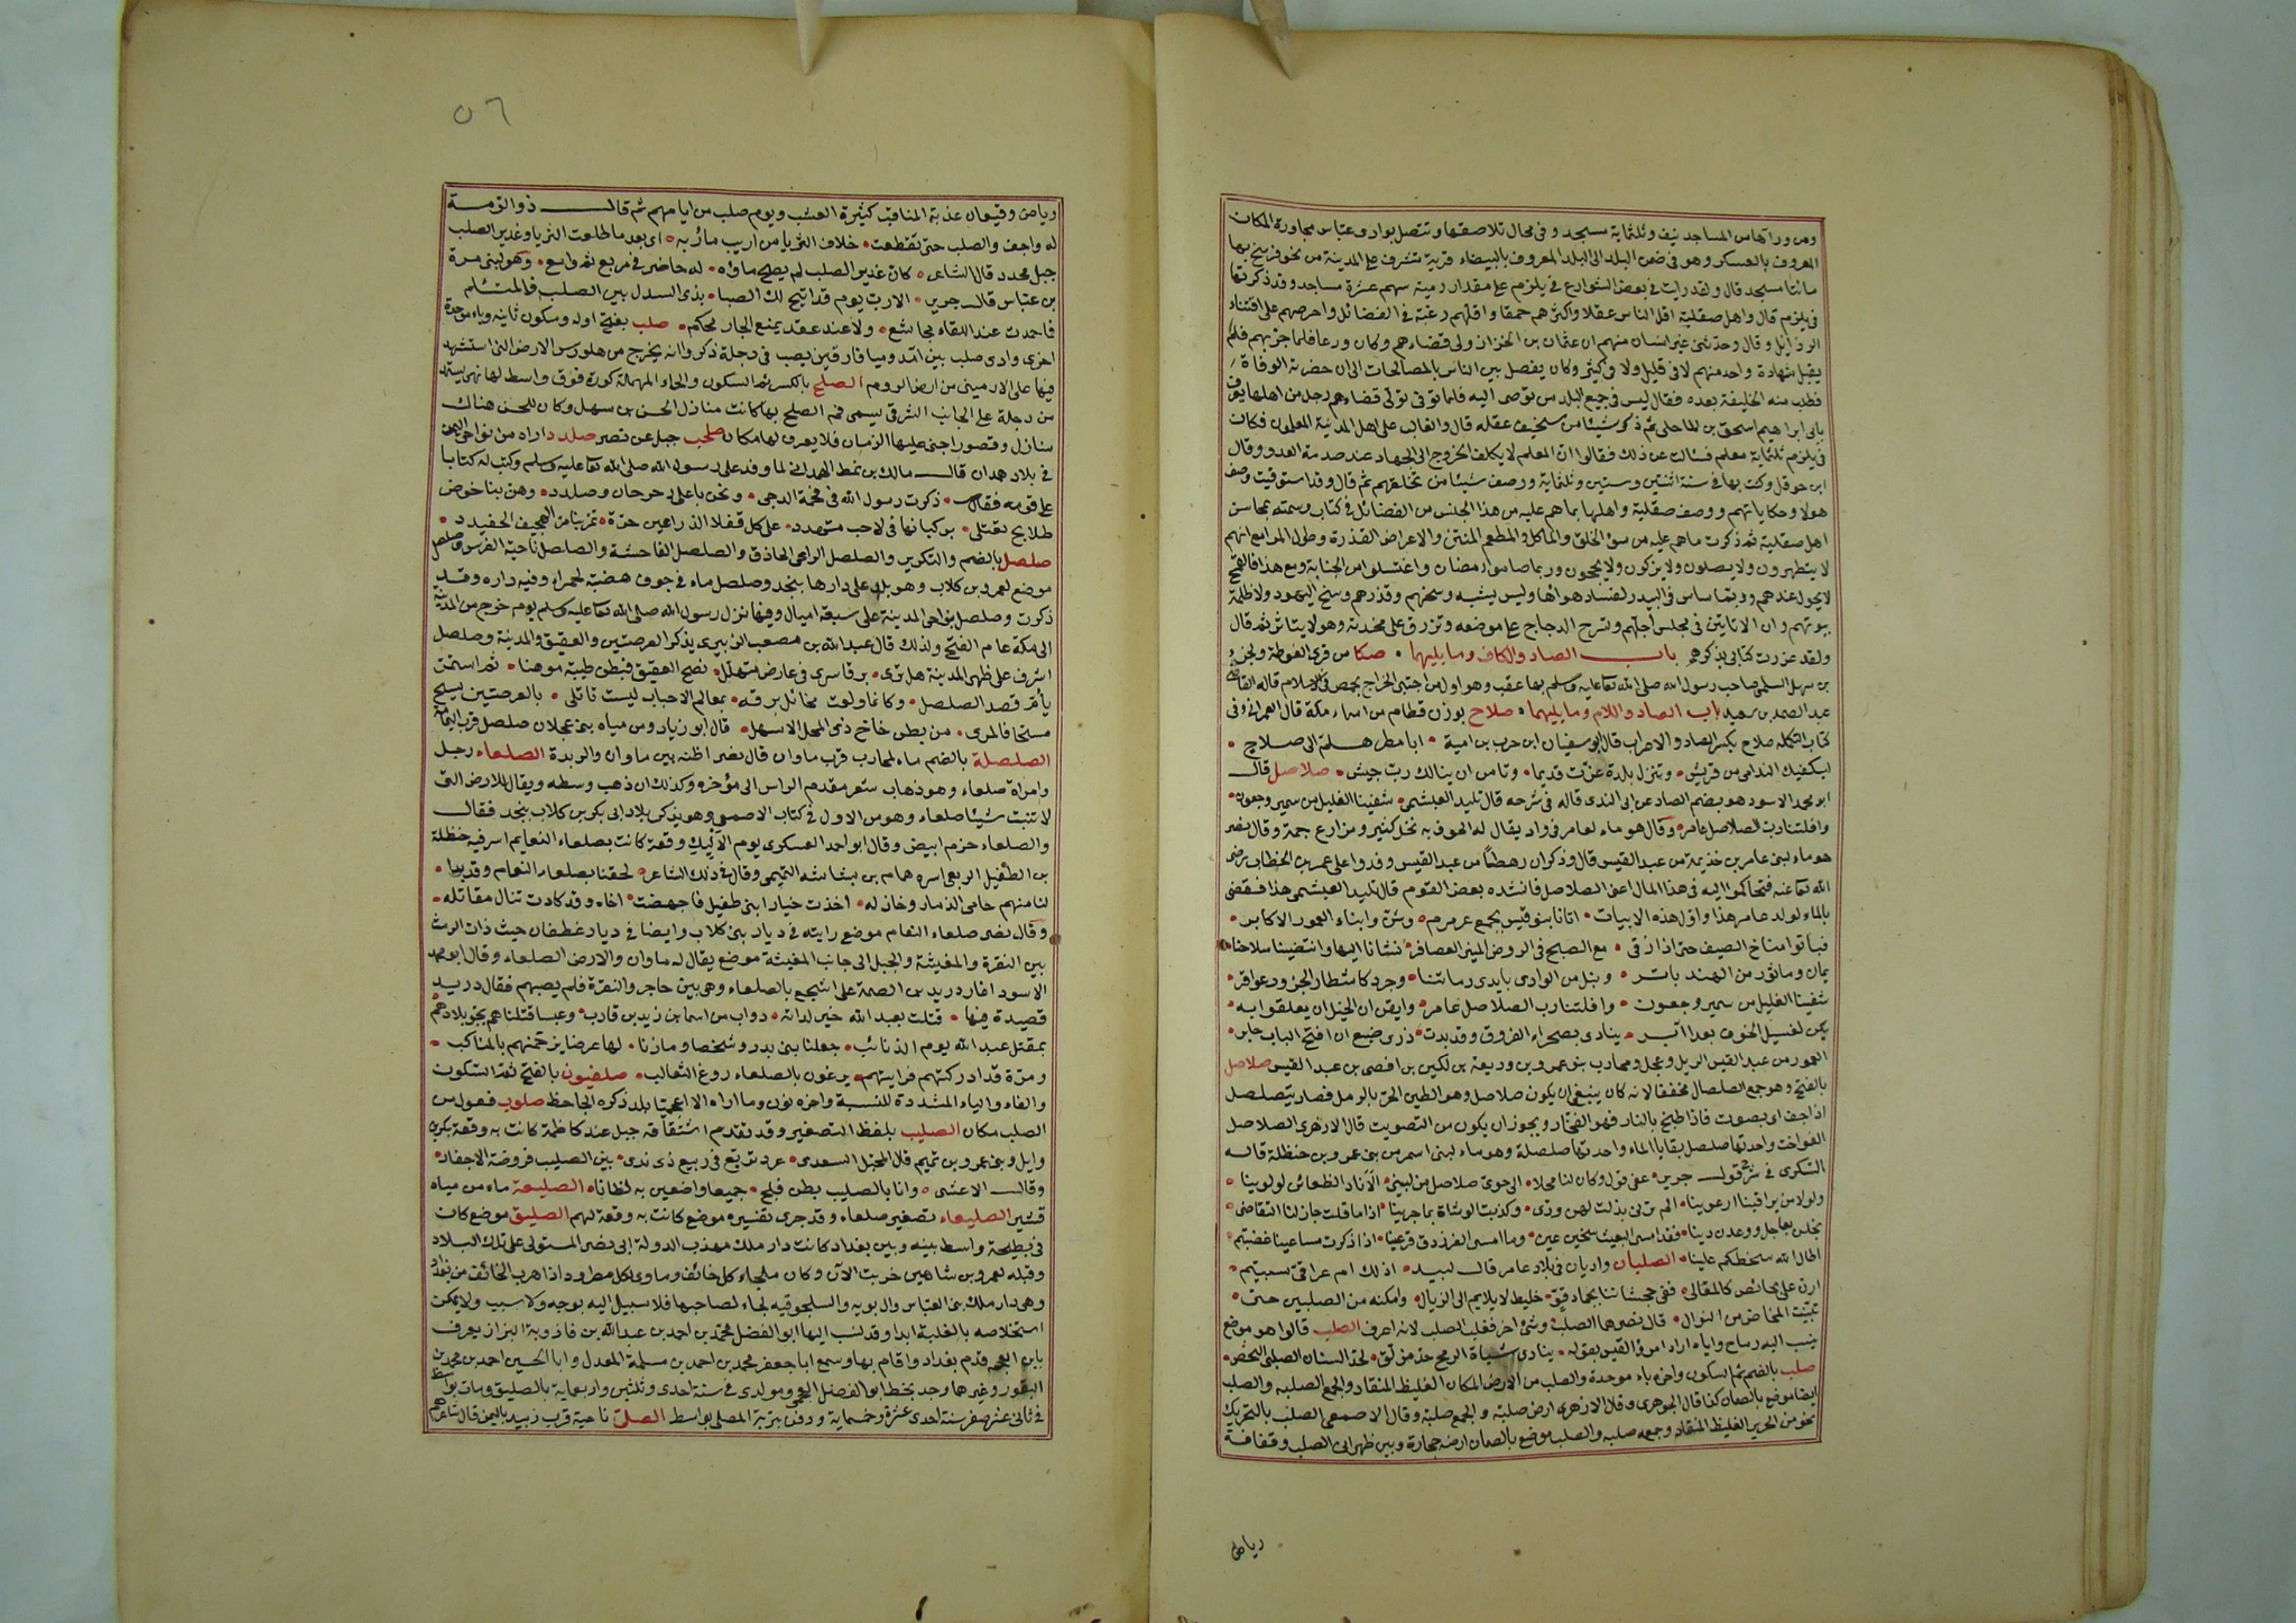 ومن ورائها من المساجد نيف وثلثماية مسجد وفي محال تلاصقها وتتصل بوادى عباس مجاورة المكان
المعروف بالعسكر وهو في ضمن البلد الى البلد المعروف بالبيضاء قرية تشرف على المدينة من نحو فرسخ بها
مائتا مسجد قال ولقد رايت في بعض الشوارع في بلرم على مقدار رمية سهم عشرة مساجد وقد ذكرتها
في بلرم قال واهل صقلية اقل الناس عقلا واكثرهم حمقا واقلهم رغبة في الفضائل واحرصهم على اقتناء
الرذايل وقال وحدثنى غير انسان منهم ان عثمان بن الخزاز ولى قضاءهم وكان ورعا فلما جربهم فلم
يقبل شهادة واحد منهم لا في قليل ولا في كثير وكان يفصل بين الناس بالمصالحات الى ان حضرته الوفاة
فطلب منه الخليفة بعده فقال ليس في جميع البلد من يوصى اليه فلما توفى تولى قضاءهم رجل من اهلها يعرف
بابى ابراهيم اسحق بن الماحلى ثم ذكر شيئا من سخيف عقله قال والغالب على اهل المدينة المعلمون فكان
في بلرم ثلثماية معلم فسالت عن ذلك فقالوا ان المعلم لا يكلف الخروج الى الجهاد عند صدمة العدو وقال
ابن حوقل وكنت بها في سنة اثنتين وستين وثلثماية ووصف شيئا من تخلقهم ثم قال وقد استوفيت وصف
هولا وحكاياتهم ووصف صقلية واهلها بما هم عليه من هذا الجنس من الفضائل في كتاب وسمته بمحاسن
اهل صقلية ثم ذكرت ما هم عليه من سؤ الخلق والماكل والمطعم المنتن والاعراض القذرة وطول المراء مع انهم
لا يتطهرون ولا يصلون ولا يزكون ولا يحجون وربما صاموا رمضان واغتسلوا من الجنابة ومع هذا فالقمح
لا يحول عندهم وربما ساس في البيدر لفساد هوائها وليس يشبه وسخهم وقذرهم وسخ اليهود ولا ظلمة
بيوتهم وان الاتاتين في مجلس اجلهم وتسرح الدجاج على موضعه وتزرق على مخدته وهو لا يتاثر ثم قال
ولقد عزرت كتابى بذكرهم باب الصاد والكاف وما يليهما • صكا من قرى الغوطة ولجزء
بن سهل السلمى صاحب رسول الله صلى الله تعا عليه وسلم بها عقب وهو اول من اجتبى الخراج بحمص في الاسلام قاله القاضى
عبد الصمد بن سعيد باب الصاد واللام وما يليهما • صلاح بوزن قطام من اسماء مكة قال العمرانى وفي
كتاب التكمله صلاح بكسر الصاد والاعراب قال ابو سفيان ابن حرب بن امية • ابا مطر هلم الى صلاح •
ليكفيك الندامى من قريش • وتنزل بلدة عزت قديما • وتامن ان ينالك رب جيش • صلاصل قال
ابو محمد الاسود هو بضم الصاد عن ابى الندى قاله في شرحه قال تليد العبشمى • شفينا الغليل من سمير وجعون •
وافلتنا رب الصلاصل عامر • وقال هو ماء لعامر في واد يقال له الجوف به نخل كثير ومزارع جمة وقال نصر
هو ماء لبنى عامر بن خذيمة من عبد القيس قال وذكر ان رهطا من عبد القيس وفدوا على عمر بن الخطاب رضى
الله تعا عنه فتحاكموا اليه في هذا المال اعنى الصلاصل فانشده بعض القوم قال تليد العبشمى هذا فقضى
بالماء لولد عامر هذا واول هذه الابيات • اتانا بنو قيس بجمع عرمرم • وشن وابناء العمور الاكابر •
فباتوا مناخ الصيف حتى اذا زقى • مع الصبح في الروض المنير العصافر • نشانا اليها وانتضينا سلاحنا •
يمان وماثور من الهند باتر • ونبل من الوادى بايدى رماتنا • وجرد كاشطار الجزور عواقر •
شفينا الغليل من سمير وجعون • وافلتنا رب الصلاصل عامر • وايقن ان الخيل ان يعلقوا به •
يكن لفسيل الخوف بعدا ابر • ينادى بصحراء الفروق وقد بدت • ذرى ضبع ان افتح الباب جابر •
العمور من عبد القيس الديل وعجل ومحارب بنو عمرو بن وديعة بن لكيز بن افصى بن عبد القيس صلاصل
بالفتح وهو جمع الصلصال مخففا لانه كان ينبغى ان يكون صلاصيل وهو الطين الحر بالرمل فصار يتصلصل
اذا جف اى يصوت فاذا طبخ بالنار فهو الفخار ويجوز ان يكون من التصويت قال الازهرى الصلاصل
الفواخت واحدتها صلصل بقايا الماء واحدتها صلصلة وهو ماء لبنى اسمر من بنى عمرو بن حنظلة قاله
السكرى في شرح قول جرير • عفى قو وكان لنا محلا • الى جوى صلاصل من لبينى • الا ناد الظعائن لو لوينا •
ولولا من يراقبنا ارعوينا • الم ترنى بذلت لهن ودى • وكذبت الوشاة بما جرينا • اذا ما قلت جاز لنا التقاضى •
بخلن بعاجل ووعدن دينا • فقد امسى البعيث سخين عين • وما امسى الفرزدق قر عينا • اذا ذكرت مساعينا غضبتم •
اطال الله سخطكم علينا • الصلبان واديان في بلاد عامر قال لبيد • اذلك ام عراقى سبيتم •
ارن على نحائص كالمقالى • ففى جحشاتنا بجماد قو • خليط لا يلايم الى الزيال • وامكنه من الصلبين حتى •
تبينت المخاض من التوال • قال نصر هما الصلب وشئ اخر فغلب الصلب لانه اعرف الصلب قالوا هو موضع
ينسب اليه رماح واياه اراد امرؤ القيس بقوله • ينادى شباة الرمح حد مذلق • لحد السنان الصلبى النحض •
صلب بالضم ثم السكون واخره باء موحدة والصلب من الارض المكان الغليظ المنقاد والجمع الصلبه والصلب
ايضا موضع بالصمان كذا قال الجوهرى وقال الازهرى ارض صلبة والجمع صلبة وقال الاصمعى الصلب بالتحريك
نحو من الحزيز الغليظ المنقاد وجمعه صلبه والصلب موضع بالصمان ارضه حجارة وبين ظهرانى الصلب وقفافه
رياض
٥٦
ورياض وقيعان عذبة المناقب كثيرة العشب ويوم صلب من ايامهم ثم قال ذو الرمة
له واجف والصلب حتى تقطعت • خلاف الثريا من اريب مآربه • اى بعد ما طلعت الثريا وغدير الصلب
جبل محدد قال الشاعر • كان غدير الصلب لم يصح ماواه • له حاضر في مربع ثم واسع • وهو لبنى مرة
بن عباس قال جرير • الا رب يوم قد اتيح لك الصبا • بذى السدل بين الصلب فالمتثلم
فما حمدت عند اللقاء مجاشع • ولا عند عقد يمنع الجار محكم • صلب بفتح اوله وسكون ثانيه وباء موحدة
اخرى وادى صلب بين امد وميافارقين يصب في دجلة ذكروا انه يخرج من هلورس الارض التى استشهد
فيها على الارمينى من ارض الروم الصلح بالكسر ثم السكون والحاء المهملة كورة فوق واسط لها نهر يستمد
من دجلة على الجانب الشرقى يسمى فم الصلح بها كانت منازل الحسن بن سهل وكان للحسن هناك
منازل وقصور اخنى عليها الزمان فلا يعرف لها مكان صلحب جبل عن نصر صلدد اراه من نواحى اليمن
في بلاد همدان قال مالك بن نمط الهمدانى لما وفد على رسول الله صلى الله تعا عليه وسلم وكتب له كتابا
على قومه فقال • ذكرت رسول الله في فحمة الدجى • ونحن باعلى رحرحان وصلدد • وهن بنا خوص
طلايح تغتلى • بركبانها في لاحب متمدد • على كل فتلا الذراعين حرة • تمر بنا مر الهجيف الحفيدد •
صلصل بالضم والتكرير والصلصل الراعى الحاذق والصلصل الفاختة والصلصل ناحية الفرس وصلصل
موضع لعمرو بن كلاب وهو باعلى دارها بنجد وصلصل ماء في جوف هضبة حمراء وفيه داره وقد
ذكرت وصلصل بنواحى المدينة على سبعة اميال وفيها نزل رسول الله صلى الله تعا عليه وسلم يوم خرج من المدينة
الى مكة عام الفتح ولذلك قال عبد الله بن مصعب الزبيرى يذكر العرصتين والعقيق والمدينة وصلصل
اشرف على ظهر المدينة هل ترى • برقا سرى في عارض متهلل • نضح العقيق فبطن طيبة موهنا • ثم استمر
يأم قصد الصلصل • وكانما ولعت مخائل برقه • بمعالم الاحباب ليست تاتلى • بالعرصتين يسح
سحا فالربى • من بطن خاخ ذى المحل الاسهل • قال ابو زياد ومن مياه بنى عجلان صلصل قرب اليمامة
الصلصلة بالضم ماء لمحارب قرب ماوان قال نصر اظنه بين ماوان والربدة الصلعاء رجل
وامراة صلعاء وهو ذهاب شعر مقدم الراس الى مؤخره وكذلك ان ذهب وسطه ويقال للارض التى
لا تنبت شيئا صلعاء وهو من الاول في كتاب الاصمعى وهو يذكر بلاد ابى بكر بن كلاب بنجد فقال
والصلعاء حزم ابيض وقال ابو احمد العسكرى يوم الاليك وقعة كانت بصلعاء النعايم اسر فيه حنظلة
بن الطفيل الربعى اسره همام بن بشاشه التميمى وقال في ذلك الشاعر • لحقنا بصلعاء النعام وقد بدا •
لنا منهم حامى الذمار وخاذله • اخذت خيار ابنى طفيل فاجهضت • اخاه وقد كادت تنال مقاتله •
وقال نصر صلعاء النعام موضع رايته في ديار بنى كلاب وايضا في ديار غطفان حيث ذات الرمث
بين النقرة والمغيثة والجبل الى جانب المغيثة موضع يقال له ماوان والارض الصلعاء وقال ابو محمد
الاسود اغار دريد بن الصمة على اشجع بالصلعاء وهى بين حاجر والنقرة فلم يصبهم فقال دريد
قصيدة منها • قتلت بعبد الله خير لداته • ذواب بن اسما بن زيد بن قارب • وعبسا قتلناهم بجو بلادهم
بمقتل عبد الله يوم الذنائب • جعلنا بنى بدر وشخصا ومازنا • لها عرضا يزحمنهم بالمناكب •
ومرة قد ادركتهم فرايتهم • يرغون بالصلعاء روغ الثعالب • صلفيون بالفتح ثم السكون
والفاء والياء المشددة للنسبة واخره نون وما اراه الا اعجميا بلد ذكره الجاحظ صلوب فعول من
الصلب مكان الصليب بلفظ التصغير وقد تقدم اشتقاقه جبل عند كاظمة كانت به وقعة بكر بن
وايل وبنى عمرو بن تميم قال المخبل السعدى • غرد تربع في ربيع ذى ندى • بين الصليب فروضة الاجفار •
وقال الاعشى • وانا بالصليب بطن فلج • جميعا واضعين به لظانا • الصليعة ماء من مياه
قشير الصليعاء تصغير صلعاء وقد جرى تفسيره موضع كانت به وقعة لهم الصليق موضع كان
في بطيحة واسط بينه وبين بغداد كانت دار ملك مهذب الدولة ابى نصر المستولى على تلك البلاد
وقبله لعمرو بن شاهين خربت الآن وكان ملجاء كل خائف وماوى لكل مطرود اذا هرب الخائف من بغداد
وهى دار ملك بنى العباس وال بويه والسلجوقيه لجاء لصاحبها فلا سبيل اليه بوجه ولا سبب ولا يمكن
استخلاصه بالغلبة ابدا وقد نسب اليها ابو الفضل محمد بن احمد بن عبد الله بن فاذوية البزاز يعرف
بابن العجمى قدم بغداد واقام بها وسمع ابا جعفر محمد بن احمد بن مسلمة المعدل وابا الحسين احمد بن محمد بن
النقور وغيرهما وجد بخط ابو الفضل العجمى ومولدى في سنة احدى وثلثين واربعماية بالصليق ومات بواسط
في ثانى عشر صفر سنة احدى عشرة وخمسماية ودفن بتربة المصلى بواسط الصلى ناحية قرب زبيد باليمن قال شاعرهم